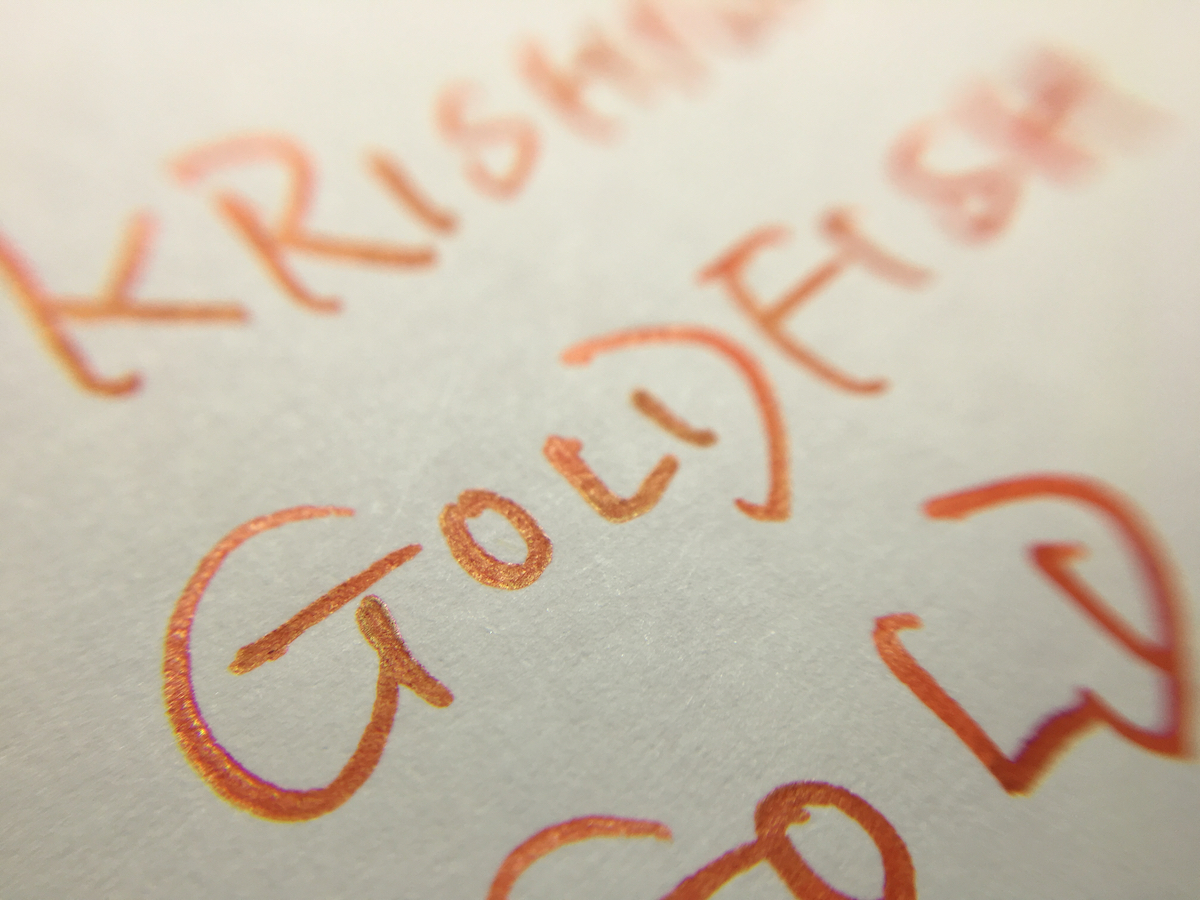 KRISHNA
GOLDFISH
GOLD